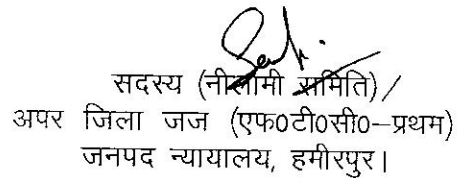 सदस्य (नीलामी समिति)/
अपर जिला जज (एफ0टी0सी0–प्रथम)
जनपद न्यायालय, हमीरपुर।